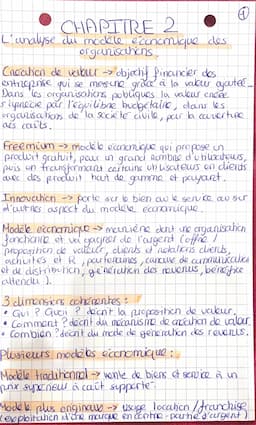 ①
CHAPITRE 2
L'analyse du modèle économique des
organisations.
Création de valeur → objectif financier des
entreprise qui se mesure grâce à la valeur ajoutée.
Dans les organisations publiques la valeur créée
s'apprécie par l'équilibre budgétaire, dans les
organisations de la société civile, par la couverture
des coûts.
Freemium → modèle économique qui propose un
produit gratuit, pour un grand nombre d'utilisateurs,
puis en transformant certains utilisateurs en clients
avec des produit haut de gamme et payant.
Innovation → porte sur le bien ou le service ou sur
d'autres aspect du modèle économique.
Modèle économique → manière dont une organisation
fonctionne et va gagner de l'argent (offre /
proposition de valeur, clients et relations clients,
activités et R, partenaires, canaux de communication
et de distribution, génération des revenus, bénéfice
attendu).
3 dimensions cohérentes :
• Qui ? Quoi ? décrit la proposition de valeur.
• Comment ? décrit du mécanisme de création de valeur
• Combien ? décrit du mode de génération des revenus.
Plusieurs modèles économique :
Modèle traditionnel → vente de biens et service à un
prix supérieur à coût supporté.
Modèle plus originaux → usage location / franchise
(exploitation d'une marque en contre-partie d'argent)